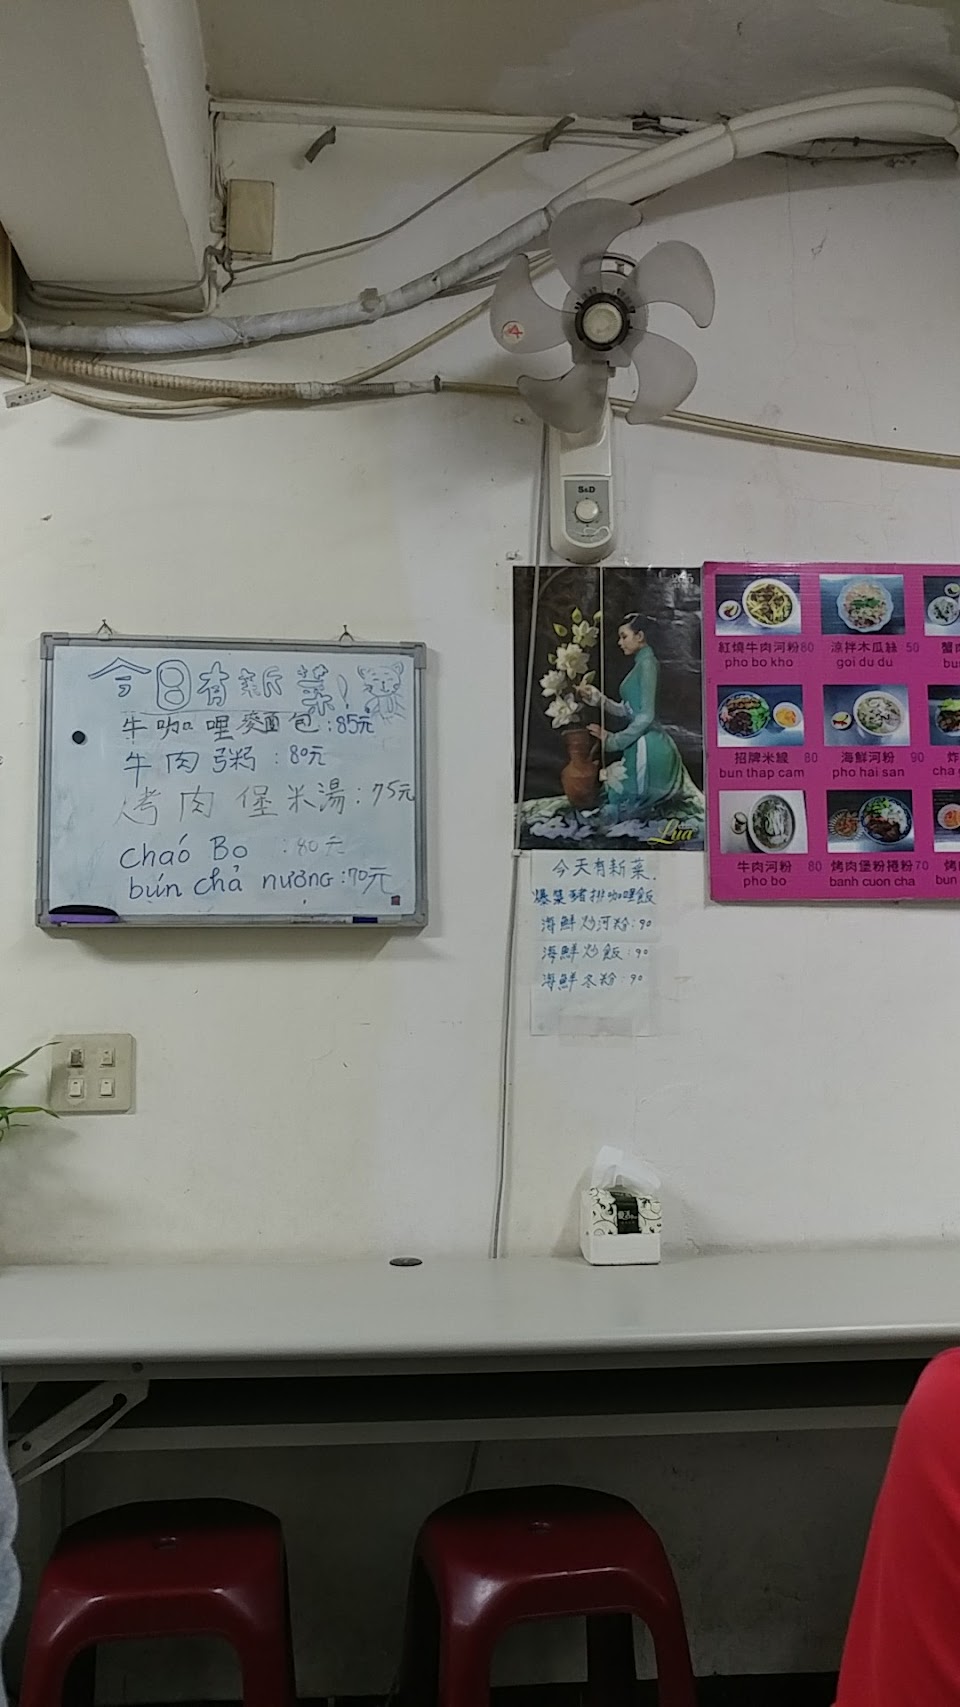 S&D
今日有新菜!
牛咖哩麵包:85元
牛肉粥:80元
烤肉堡米湯:75元
chaó Bo :80元
bún chả nướng:70元
Lụa
今天有新菜.
爆漿豬排咖哩飯
海鮮炒河粉:90
海鮮炒飯:90
海鮮冬粉:90
紅燒牛肉河粉80
pho bo kho
涼拌木瓜絲 50
goi du du
招牌米線 80
bun thap cam
海鮮河粉 90
pho hai san
牛肉河粉 80
pho bo
烤肉堡粉捲粉70
banh cuon cha